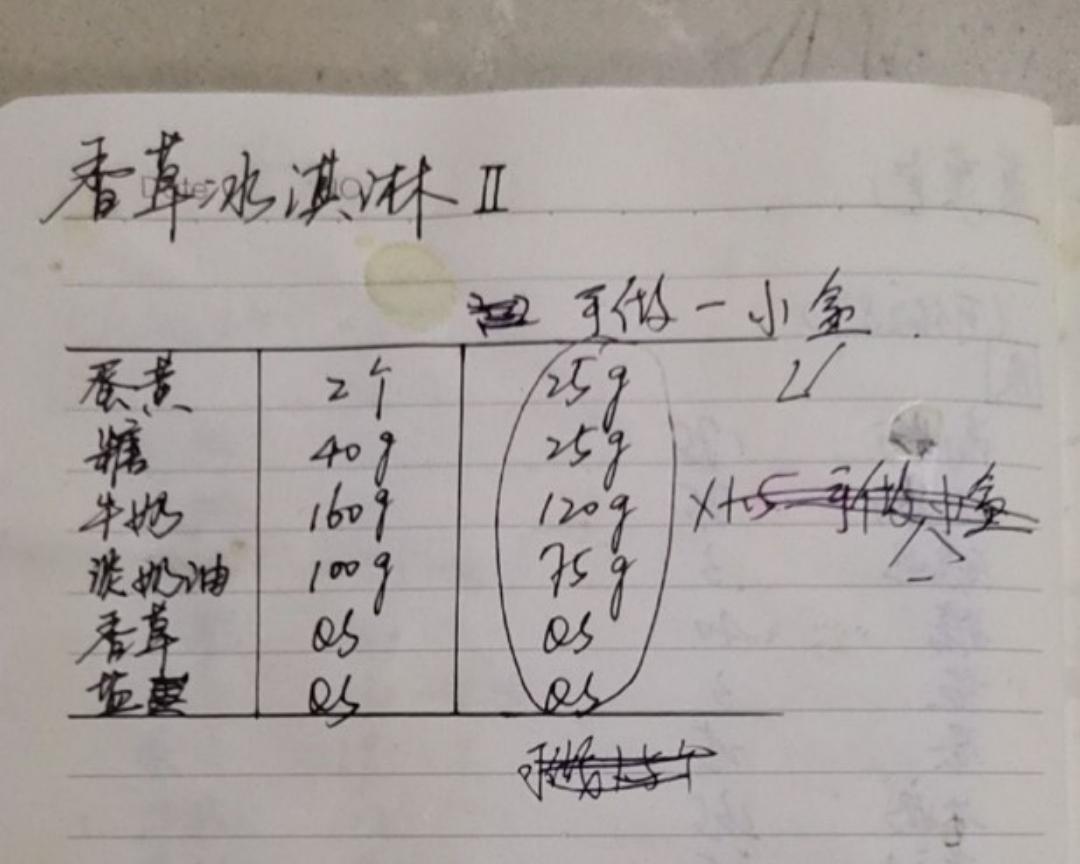 香草冰淇淋 II
可做一小盒
蛋黄 2个 25g
糖 40g 25g
牛奶 160g 120g ×1.5 可做小盒
淡奶油 100g 75g
香草 QS QS
盐 QS QS